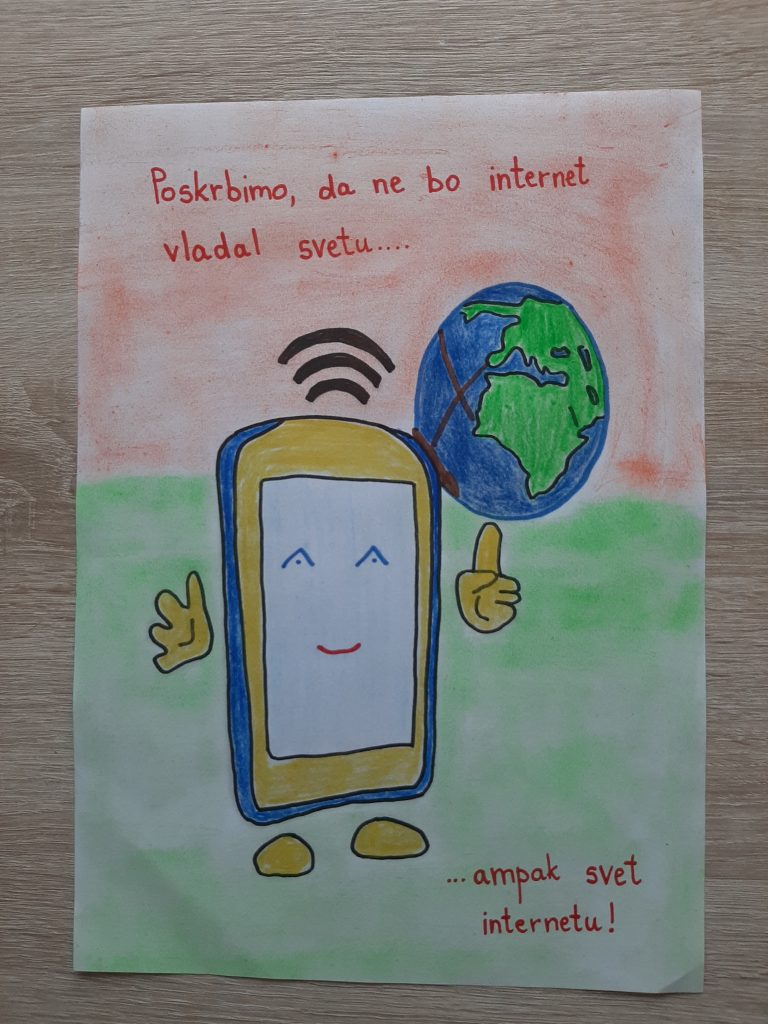 Poskrbimo, da ne bo internet
vladal svetu....
...ampak svet
internetu!